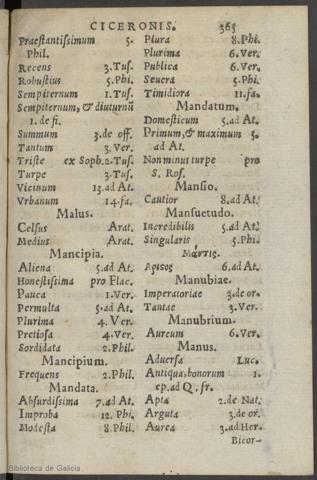 CICERONIS. 365
Praestantissimum 5.
Phil.
Recens 3.Tus.
Robustius 5.Phi.
Sempiternum 1.Tus.
Sempiternum, & diuturnũ
1.de fi.
Summum 3.de off.
Tantum 3.Ver.
Triste ex Soph.2.Tus.
Turpe 3.Tus.
Vicinum 13.ad At.
Vrbanum 14.fa.
Malus.
Celsus Arat.
Medius Arat.
Mancipia.
Aliena 5.ad At.
Honestissima pro Flac.
Pauca 1.Ver.
Permulta 5.ad At.
Plurima 4.Ver.
Pretiosa 4.Ver.
Sordidata 2.Phil.
Mancipium.
Frequens 2.Phil.
Mandata.
Absurdissima 7.ad At.
Improba 12.Phi.
Modesta 8.Phil.
Plura 8.Phi.
Plurima 6.Ver.
Publica 6.Ver.
Seuera 5.Phi.
Timidiora 11.fa.
Mandatum.
Domesticum 5.ad At.
Primum, & maximum 5.
ad At.
Non minus turpe pro
S. Ros.
Mansio.
Cautior 8.ad At.
Mansuetudo.
Incredibilis 5.ad At.
Singularis 5.Phi.
Μάντις.
Αρισος 6.ad At.
Manubiae.
Imperatoriae 3.de or.
Tantae 3.Ver.
Manubrium.
Aureum 6.Ver.
Manus.
Aduersa Luc.
Antiqua, bonorum 1.
ep.ad Q. fr.
Apta 2.de Nat.
Arguta 3.de or.
Aurea 3.ad Her.
Bicor-
Biblioteca de Galicia